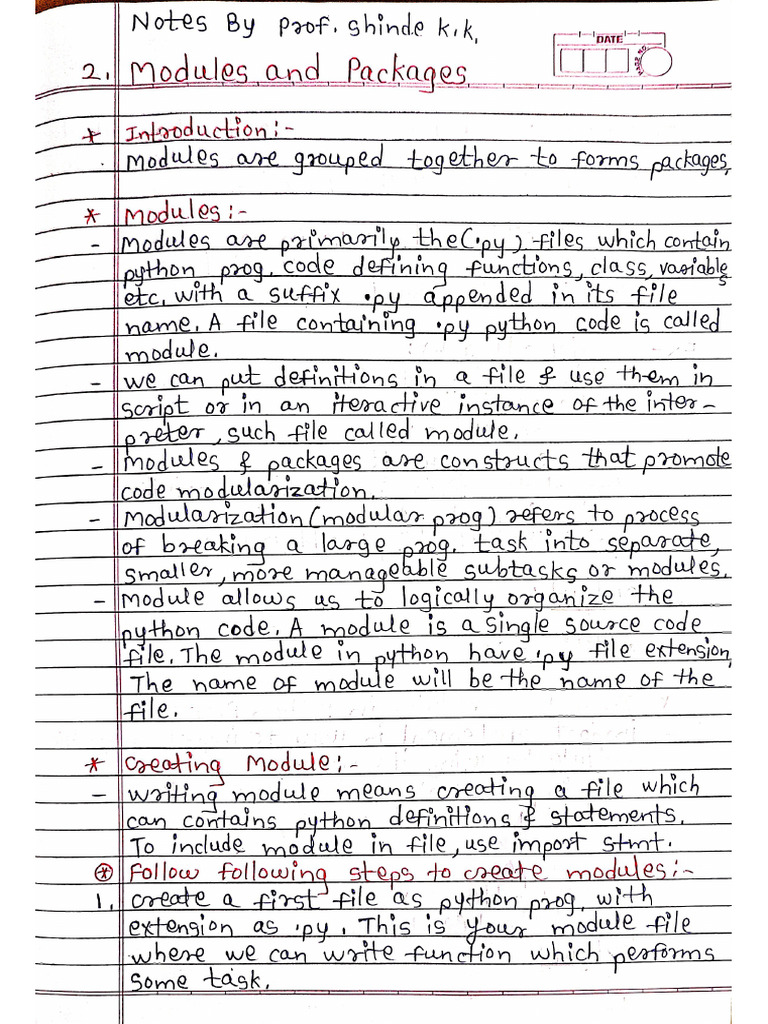 Notes By Prof. Shinde K.K.
DATE
2. Modules and Packages
* Introduction:-
Modules are grouped together to forms packages.
* Modules:-
- Modules are primarily the(.py) files which contain
python prog. code defining functions, class, variables
etc. with a suffix .py appended in its file
name. A file containing .py python code is called
module.
- we can put definitions in a file & use them in
script or in an iteractive instance of the inter-
preter, such file called module.
- Modules & packages are constructs that promote
code modularization.
- Modularization (modular prog) refers to process
of breaking a large prog. task into separate,
smaller, more manageable subtasks or modules.
- Module allows us to logically organize the
python code. A module is a single source code
file. The module in python have .py file extension.
The name of module will be the name of the
file.
* Creating Module:-
- writing module means creating a file which
can contains python definitions & statements.
To include module in file, use import stmt.
* Follow following steps to create modules:-
1. create a first file as python prog. with
extension as .py. This is your module file
where we can write function which performs
some task.